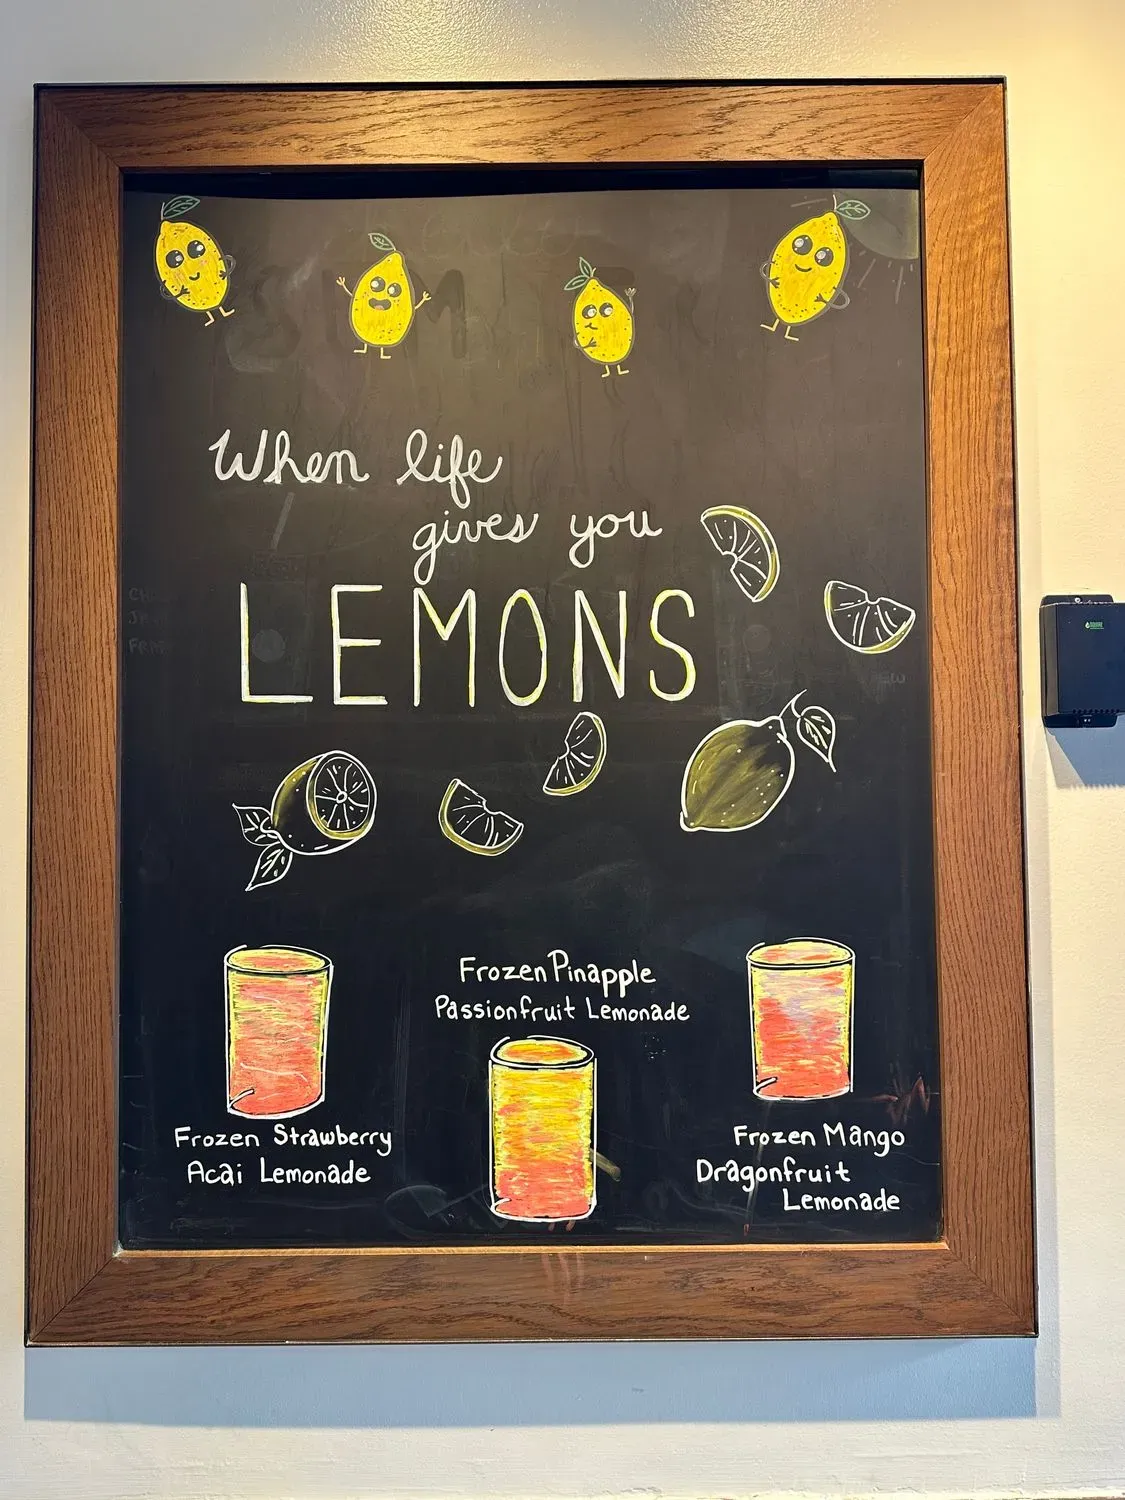 When life
gives you
LEMONS
Frozen Pinapple
Passionfruit Lemonade
Frozen Strawberry
Acai Lemonade
Frozen Mango
Dragonfruit
Lemonade